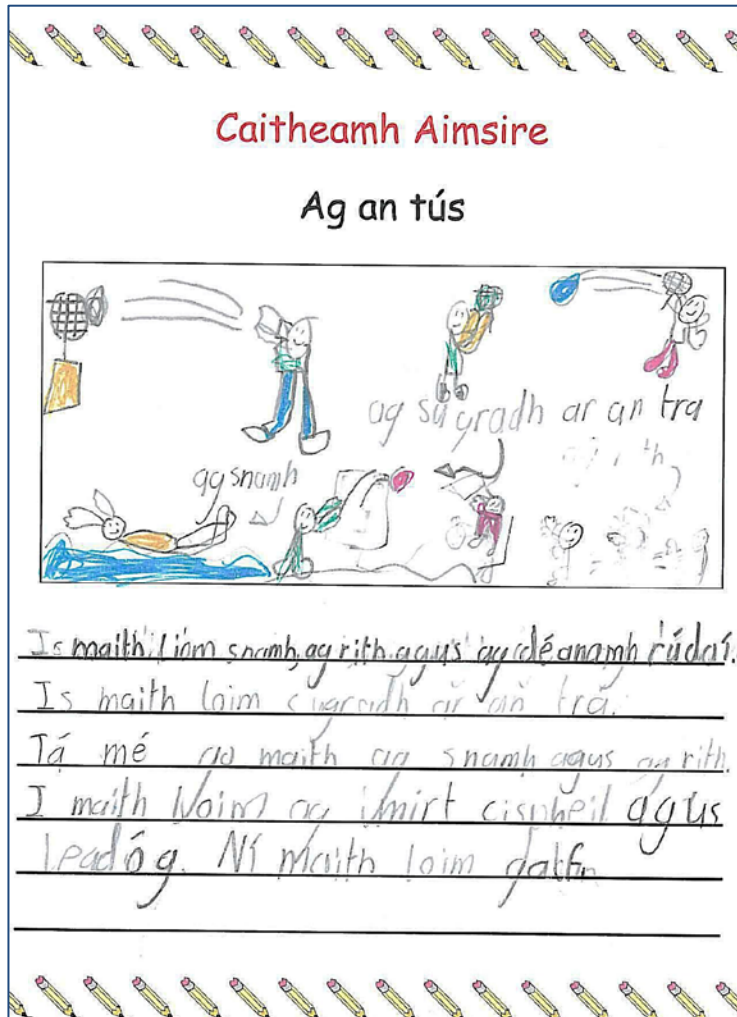 Caitheamh Aimsire
Ag an tús
ag sugradh ar an tra
ag snamh
Is maith liom snamh, ag rith agus ag déanamh rúdaí.
Is maith loim sugradh ar an trá.
Tá mé go maith ag snamh agus ag rith.
I maith loim ag imirt cispheil agus
leadóg. Ní maith loim